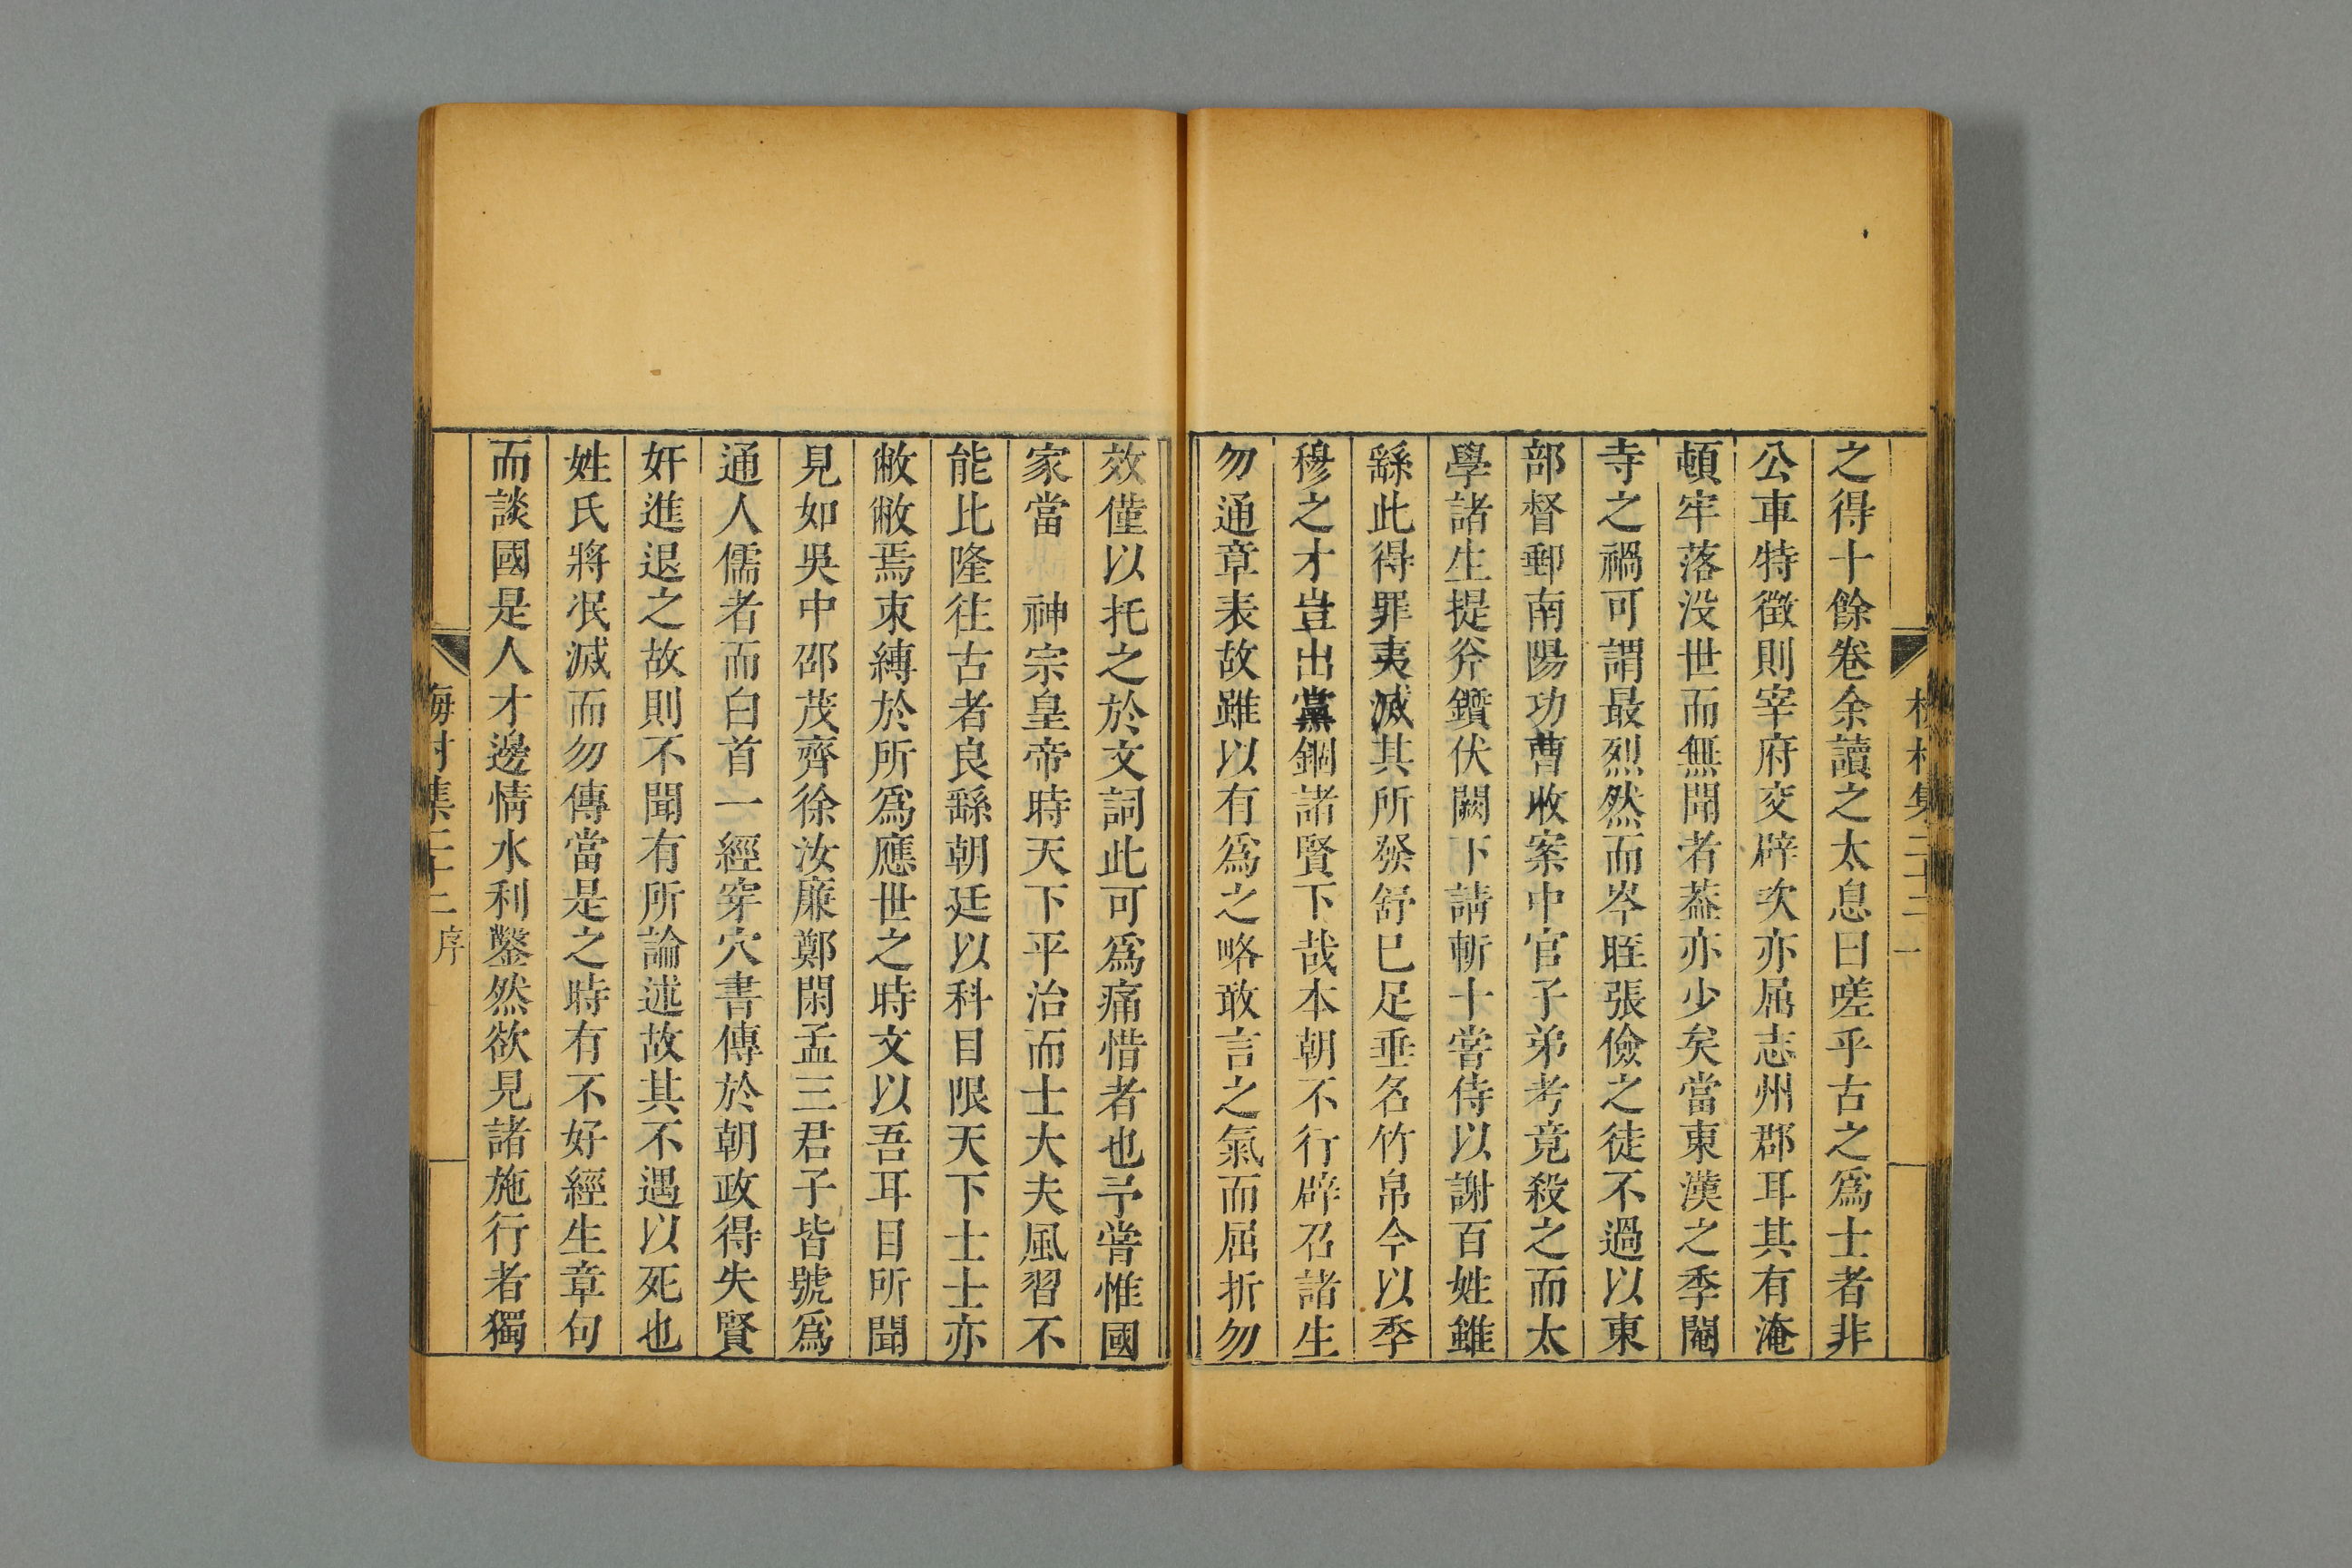 之得十餘卷余讀之太息曰嗟乎古之爲士者非
公車特徵則宰府交辟次亦屈志州郡耳其有淹
頓牢落沒世而無聞者葢亦少矣當東漢之季閹
寺之禍可謂最烈然而岑晊張儉之徒不過以東
部督郵南陽功曹收案中官子弟考竟殺之而太
學諸生提斧鑕伏闕下請斬十常侍以謝百姓雖
繇此得罪夷滅其所發舒已足垂名竹帛今以季
穆之才豈出黨錮諸賢下哉本朝不行辟召諸生
勿通章表故雖以有爲之略敢言之氣而屈折勿
效僅以托之於文詞此可爲痛惜者也予嘗惟國
家當　神宗皇帝時天下平治而士大夫風習不
能比隆往古者良繇朝廷以科目限天下士士亦
敝敝焉束縛於所爲應世之時文以吾耳目所聞
見如吳中邵茂齊徐汝廉鄭閑孟三君子皆號爲
通人儒者而白首一經穿穴書傳於朝政得失賢
奸進退之故則不聞有所論述故其不遇以死也
姓氏將泯滅而勿傳當是之時有不好經生章句
而談國是人才邊情水利鑿然欲見諸施行者獨
梅村集二十二 序